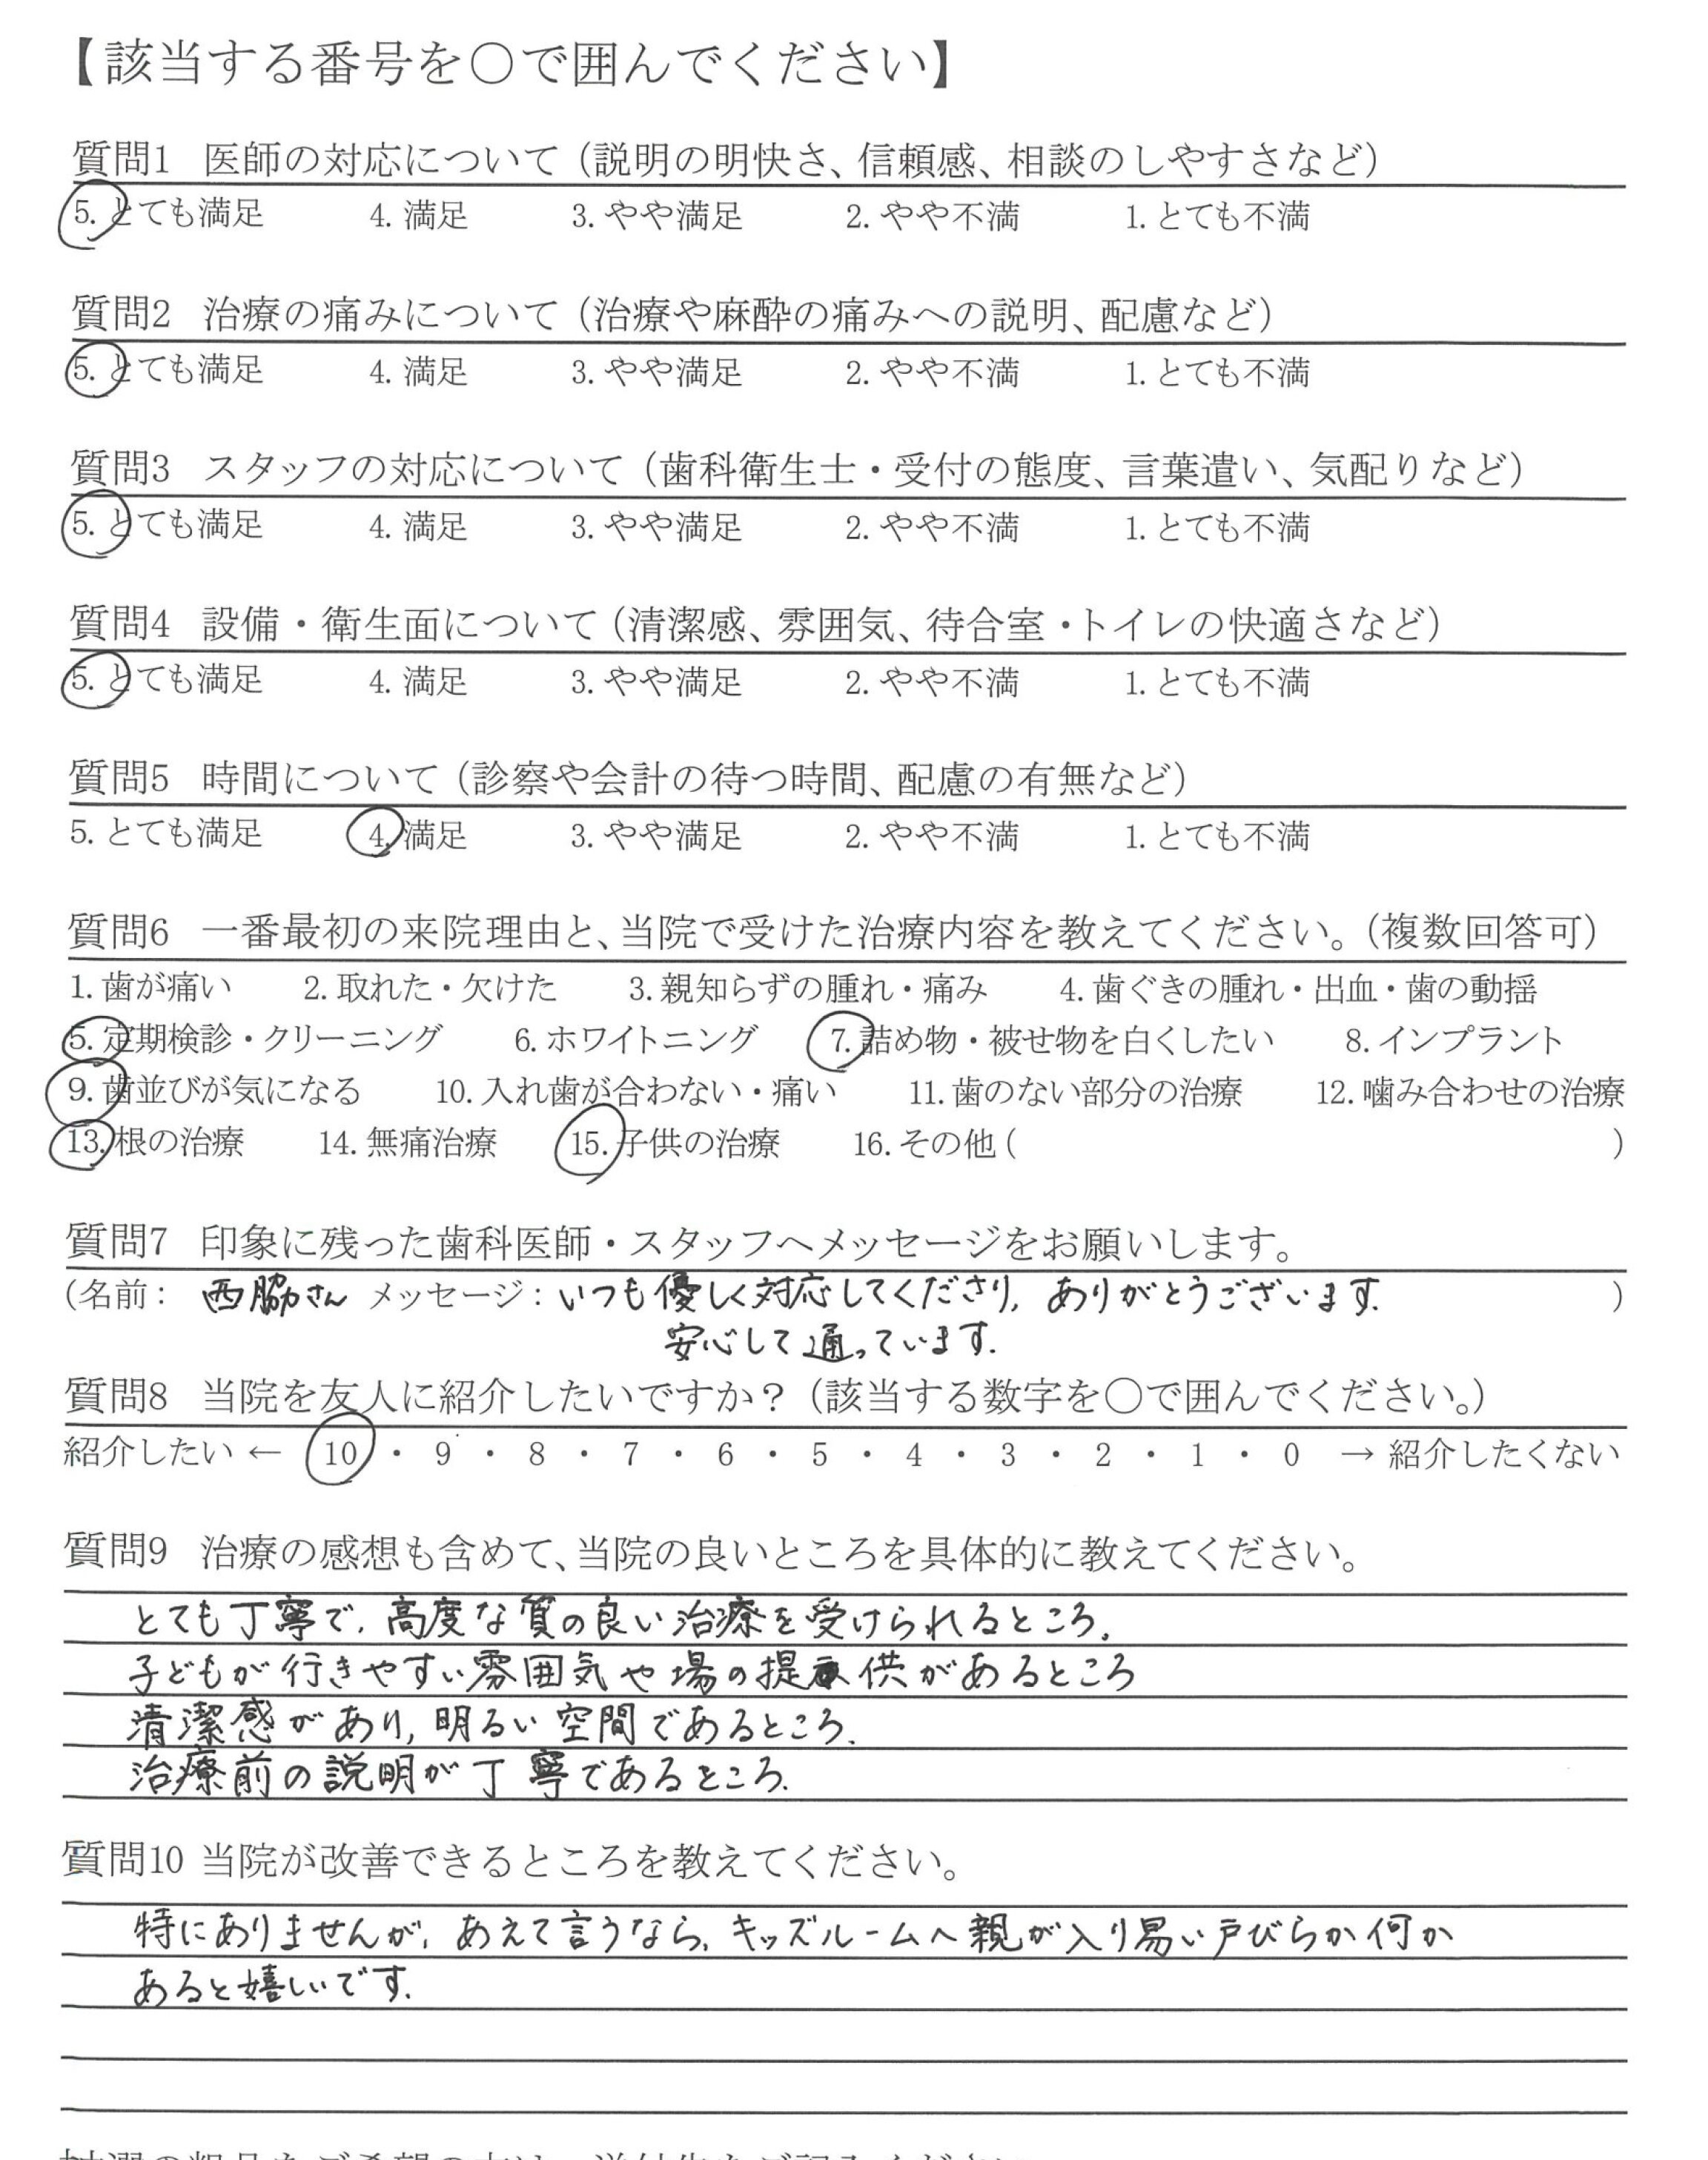 【該当する番号を○で囲んでください】
質問1 医師の対応について（説明の明快さ、信頼感、相談のしやすさなど）
5. とても満足 4. 満足 3. やや満足 2. やや不満 1. とても不満
質問2 治療の痛みについて（治療や麻酔の痛みへの説明、配慮など）
5. とても満足 4. 満足 3. やや満足 2. やや不満 1. とても不満
質問3 スタッフの対応について（歯科衛生士・受付の態度、言葉遣い、気配りなど）
5. とても満足 4. 満足 3. やや満足 2. やや不満 1. とても不満
質問4 設備・衛生面について（清潔感、雰囲気、待合室・トイレの快適さなど）
5. とても満足 4. 満足 3. やや満足 2. やや不満 1. とても不満
質問5 時間について（診察や会計の待つ時間、配慮の有無など）
5. とても満足 4. 満足 3. やや満足 2. やや不満 1. とても不満
質問6 一番最初の来院理由と、当院で受けた治療内容を教えてください。（複数回答可）
1. 歯が痛い 2. 取れた・欠けた 3. 親知らずの腫れ・痛み 4. 歯ぐきの腫れ・出血・歯の動揺
5. 定期検診・クリーニング 6. ホワイトニング 7. 詰め物・被せ物を白くしたい 8. インプラント
9. 歯並びが気になる 10. 入れ歯が合わない・痛い 11. 歯のない部分の治療 12. 噛み合わせの治療
13. 根の治療 14. 無痛治療 15. 子供の治療 16. その他（ ）
質問7 印象に残った歯科医師・スタッフへメッセージをお願いします。
（名前： 西脇さん メッセージ：いつも優しく対応してくださり, ありがとうございます. ）
安心して通っています.
質問8 当院を友人に紹介したいですか？（該当する数字を○で囲んでください。）
紹介したい ← 10 ・ 9 ・ 8 ・ 7 ・ 6 ・ 5 ・ 4 ・ 3 ・ 2 ・ 1 ・ 0 → 紹介したくない
質問9 治療の感想も含めて、当院の良いところを具体的に教えてください。
とても丁寧で, 高度な質の良い治療を受けられるところ.
子どもが行きやすい雰囲気や場の提供があるところ
清潔感があり, 明るい空間であるところ.
治療前の説明が丁寧であるところ.
質問10 当院が改善できるところを教えてください。
特にありませんが, あえて言うなら, キッズルームへ親が入り易い戸びらか何か
あると嬉しいです.